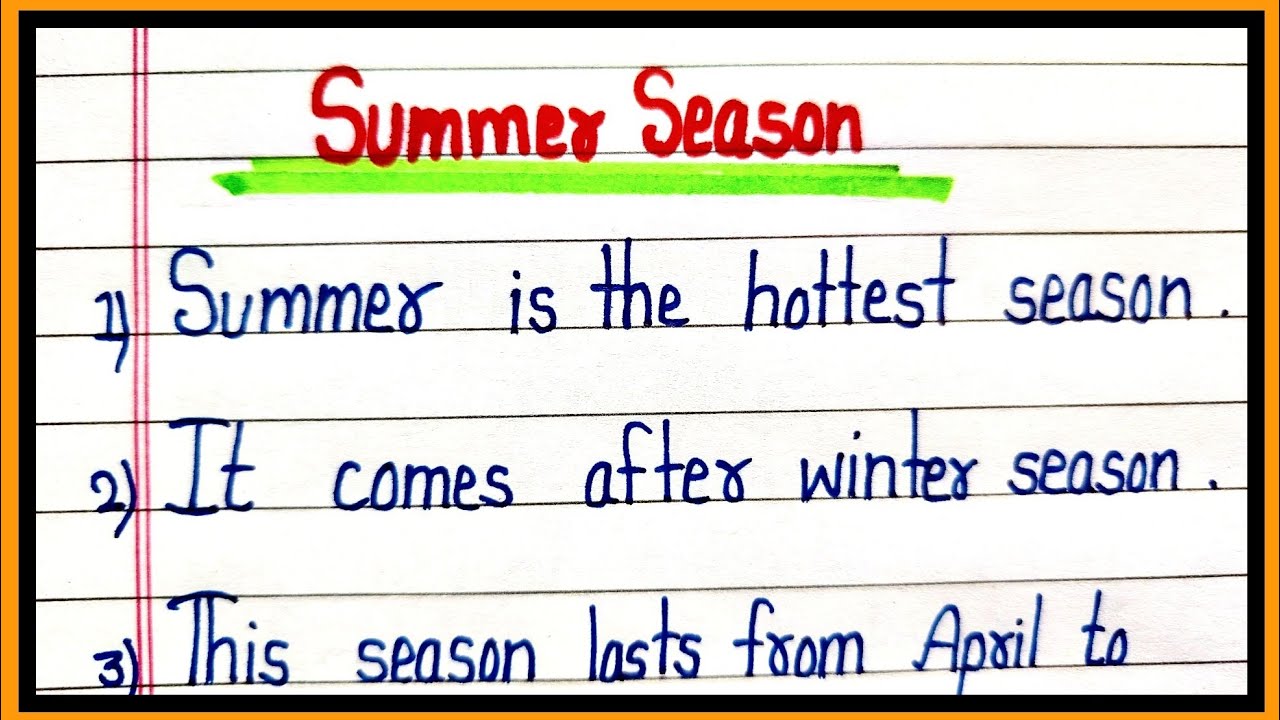 Summer Season
1) Summer is the hottest season.
2) It comes after winter season.
3) This season lasts from April to